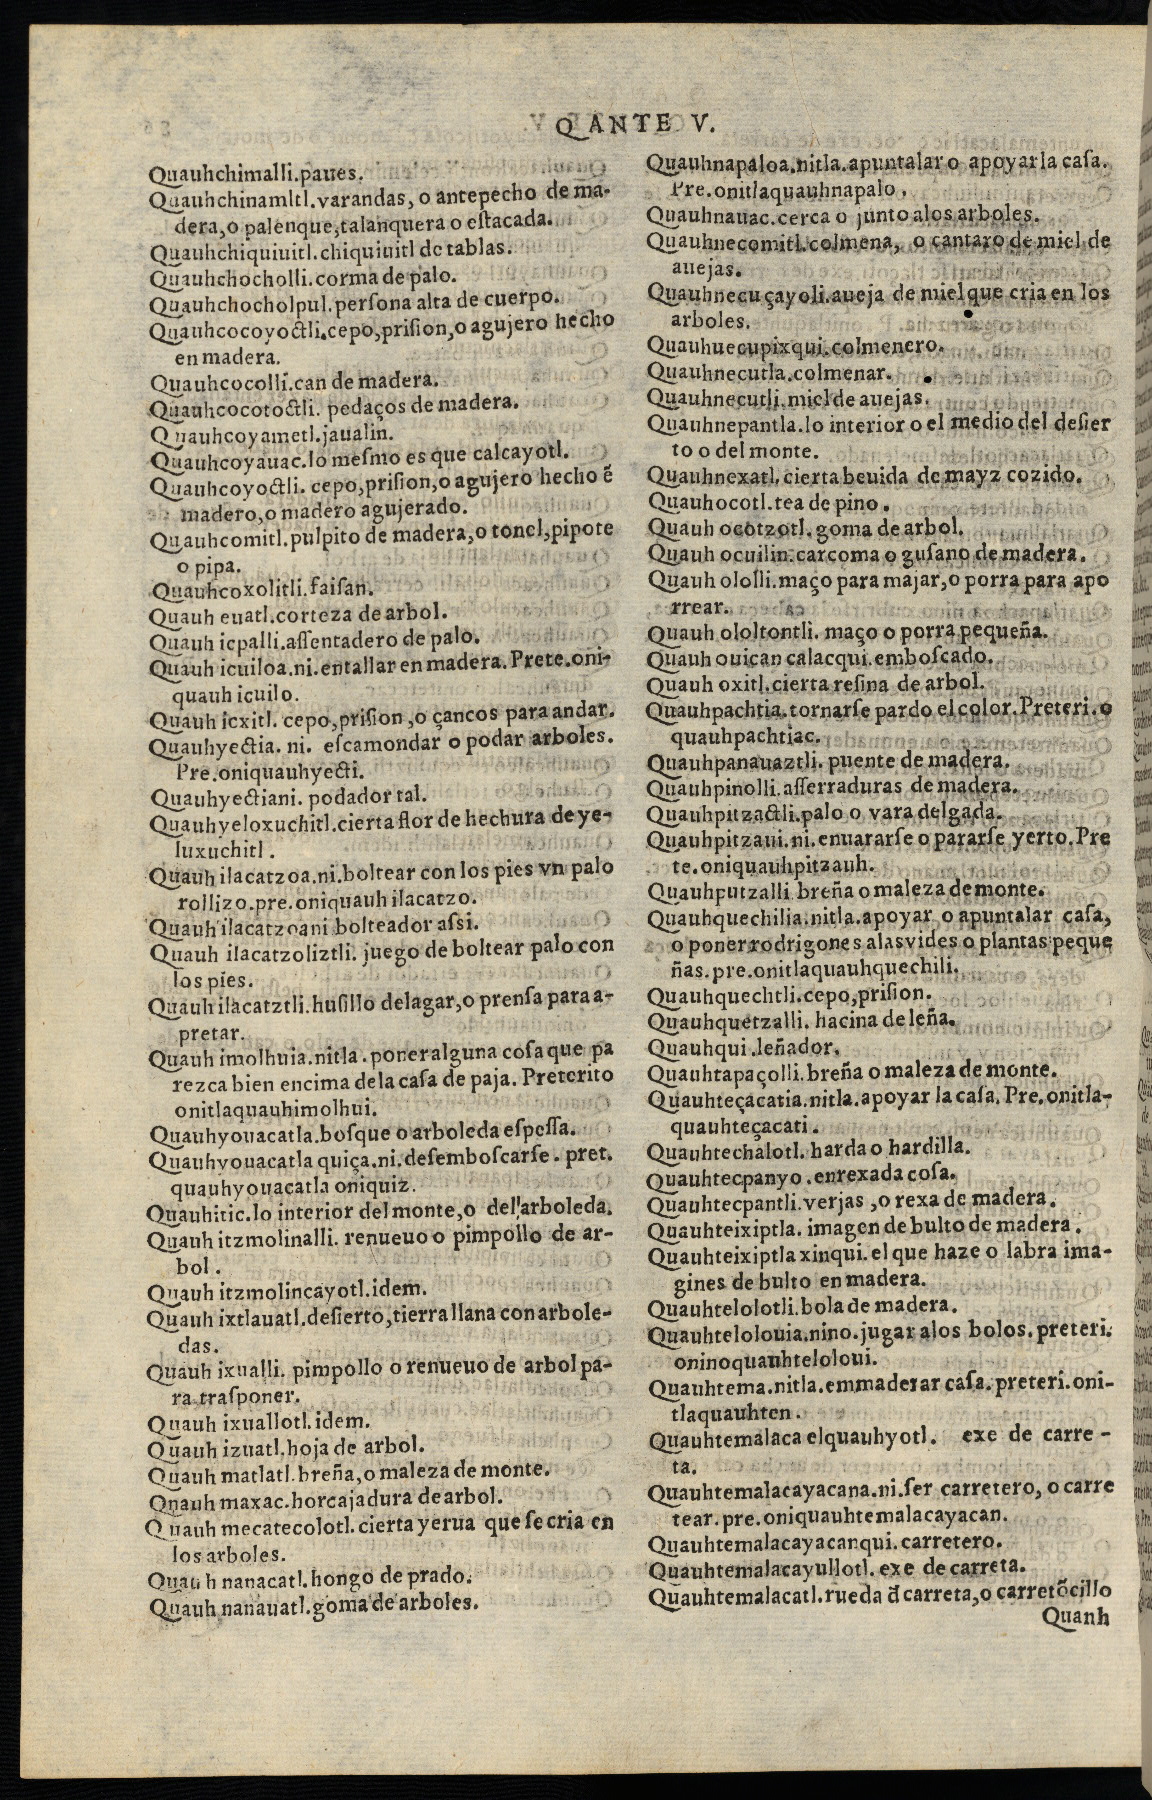 Q ANTE V.
Quauhchimalli.paues.
Quauhchinamltl.varandas, o antepecho de ma-
dera,o palenque,talanquera o eſtacada.
Quauhchiquiuitl.chiquiuitl de tablas.
Quauhchocholli.corma de palo.
Quauhchocholpul.perſona alta de cuerpo.
Quauhcocoyoctli.cepo,priſion,o agujero hecho
en madera.
Quauhcocolli.can de madera.
Quauhcocotoctli. pedaços de madera.
Quauhcoyametl.jaualin.
Quauhcoyauac.lo meſmo es que calcayotl.
Quauhcoyoctli. cepo,priſion,o agujero hecho ẽ
madero,o madero agujerado.
Quauhcomitl.pulpito de madera,o tonel,pipote
o pipa.
Quauhcoxolitli.faiſan.
Quauh euatl.corteza de arbol.
Quauh icpalli.aſſentadero de palo.
Quauh icuiloa.ni.entallar en madera.Prete.oni-
quauh icuilo.
Quauh icxitl. cepo,priſion,o çancos para andar.
Quauhyectia. ni. eſcamondar o podar arboles.
Pre.oniquauhyecti.
Quauhyectiani. podador tal.
Quauhyeloxuchitl.cierta flor de hechura de ye-
luxuchitl.
Quauh ilacatzoa.ni.boltear con los pies vn palo
rollizo.pre.oniquauh ilacatzo.
Quauh ilacatzoani bolteador aſsi.
Quauh ilacatzoliztli. juego de boltear palo con
los pies.
Quauh ilacatztli.huſillo delagar,o prenſa para a-
pretar.
Quauh imolhuia.nitla.poner alguna coſa que pa
rezca bien encima dela caſa de paja. Preterito
onitlaquauhimolhui.
Quauhyouacatla.boſque o arboleda eſpeſſa.
Quauhyouacatla quiça.ni.deſemboſcarſe. pret.
quauhyouacatla oniquiz.
Quauhitic.lo interior del monte,o del arboleda.
Quauh itzmolinalli. renueuo o pimpollo de ar-
bol.
Quauh itzmolincayotl.idem.
Quauh ixtlauatl.deſierto,tierra llana con arbole-
das.
Quauh ixualli. pimpollo o renueuo de arbol pa-
ra traſponer.
Quauh ixuallotl.idem.
Quauh izuatl.hoja de arbol.
Quauh matlatl.breña,o maleza de monte.
Quauh maxac.horcajadura de arbol.
Quauh mecatecolotl.cierta yerua que ſe cria en
los arboles.
Quauh nanacatl.hongo de prado.
Quauh nanauatl.goma de arboles.
Quauhnapaloa.nitla.apuntalar o apoyar la caſa.
Pre.onitlaquauhnapalo.
Quauhnauac.cerca o junto alos arboles.
Quauhnecomitl.colmena, o cantaro de miel de
auejas.
Quauhnecuçayoli.aueja de miel que cria en los
arboles.
Quauhuecupixqui.colmenero.
Quauhnecutla.colmenar.
Quauhnecutli.miel de auejas.
Quauhnepantla.lo interior o el medio del deſier
to o del monte.
Quauhnexatl.cierta beuida de mayz cozido.
Quauhocotl.tea de pino.
Quauh ocotzotl.goma de arbol.
Quauh ocuilin.carcoma o guſano de madera.
Quauh ololli.maço para majar,o porra para apo
rrear.
Quauh ololtontli. maço o porra pequeña.
Quauh ouican calacqui.emboſcado.
Quauh oxitl.cierta reſina de arbol.
Quauhpachtia.tornarſe pardo el color.Preteri.o
quauhpachtiac.
Quauhpanauaztli. puente de madera.
Quauhpinolli.aſſerraduras de madera.
Quauhpitzactli.palo o vara delgada.
Quauhpitzaui.ni.enuararſe o pararſe yerto.Pre
te.oniquauhpitzauh.
Quauhputzalli breña o maleza de monte.
Quauhquechilia.nitla.apoyar o apuntalar caſa,
o poner rodrigones alas vides o plantas peque
ñas.pre.onitlaquauhquechili.
Quauhquechtli.cepo,priſion.
Quauhquetzalli. hacina de leña.
Quauhqui.leñador.
Quauhtapaçolli.breña o maleza de monte.
Quauhteçacatia.nitla.apoyar la caſa.Pre.onitla-
quauhteçacati.
Quauhtechalotl. harda o hardilla.
Quauhtecpanyo.enrexada coſa.
Quauhtecpantli.verjas,o rexa de madera.
Quauhteixiptla. imagen de bulto de madera.
Quauhteixiptla xinqui.el que haze o labra ima-
gines de bulto en madera.
Quauhtelolotli.bola de madera.
Quauhtelolouia.nino.jugar alos bolos.preteri.
oninoquauhteloloui.
Quauhtema.nitla.emmaderar caſa.preteri.oni-
tlaquauhten.
Quauhtemalaca elquauhyotl. exe de carre-
ta.
Quauhtemalacayacana.ni.ſer carretero, o carre
tear.pre.oniquauhtemalacayacan.
Quauhtemalacayacanqui.carretero.
Quauhtemalacayullotl. exe de carreta.
Quauhtemalacatl.rueda đ carreta,o carretõcillo
Quanh